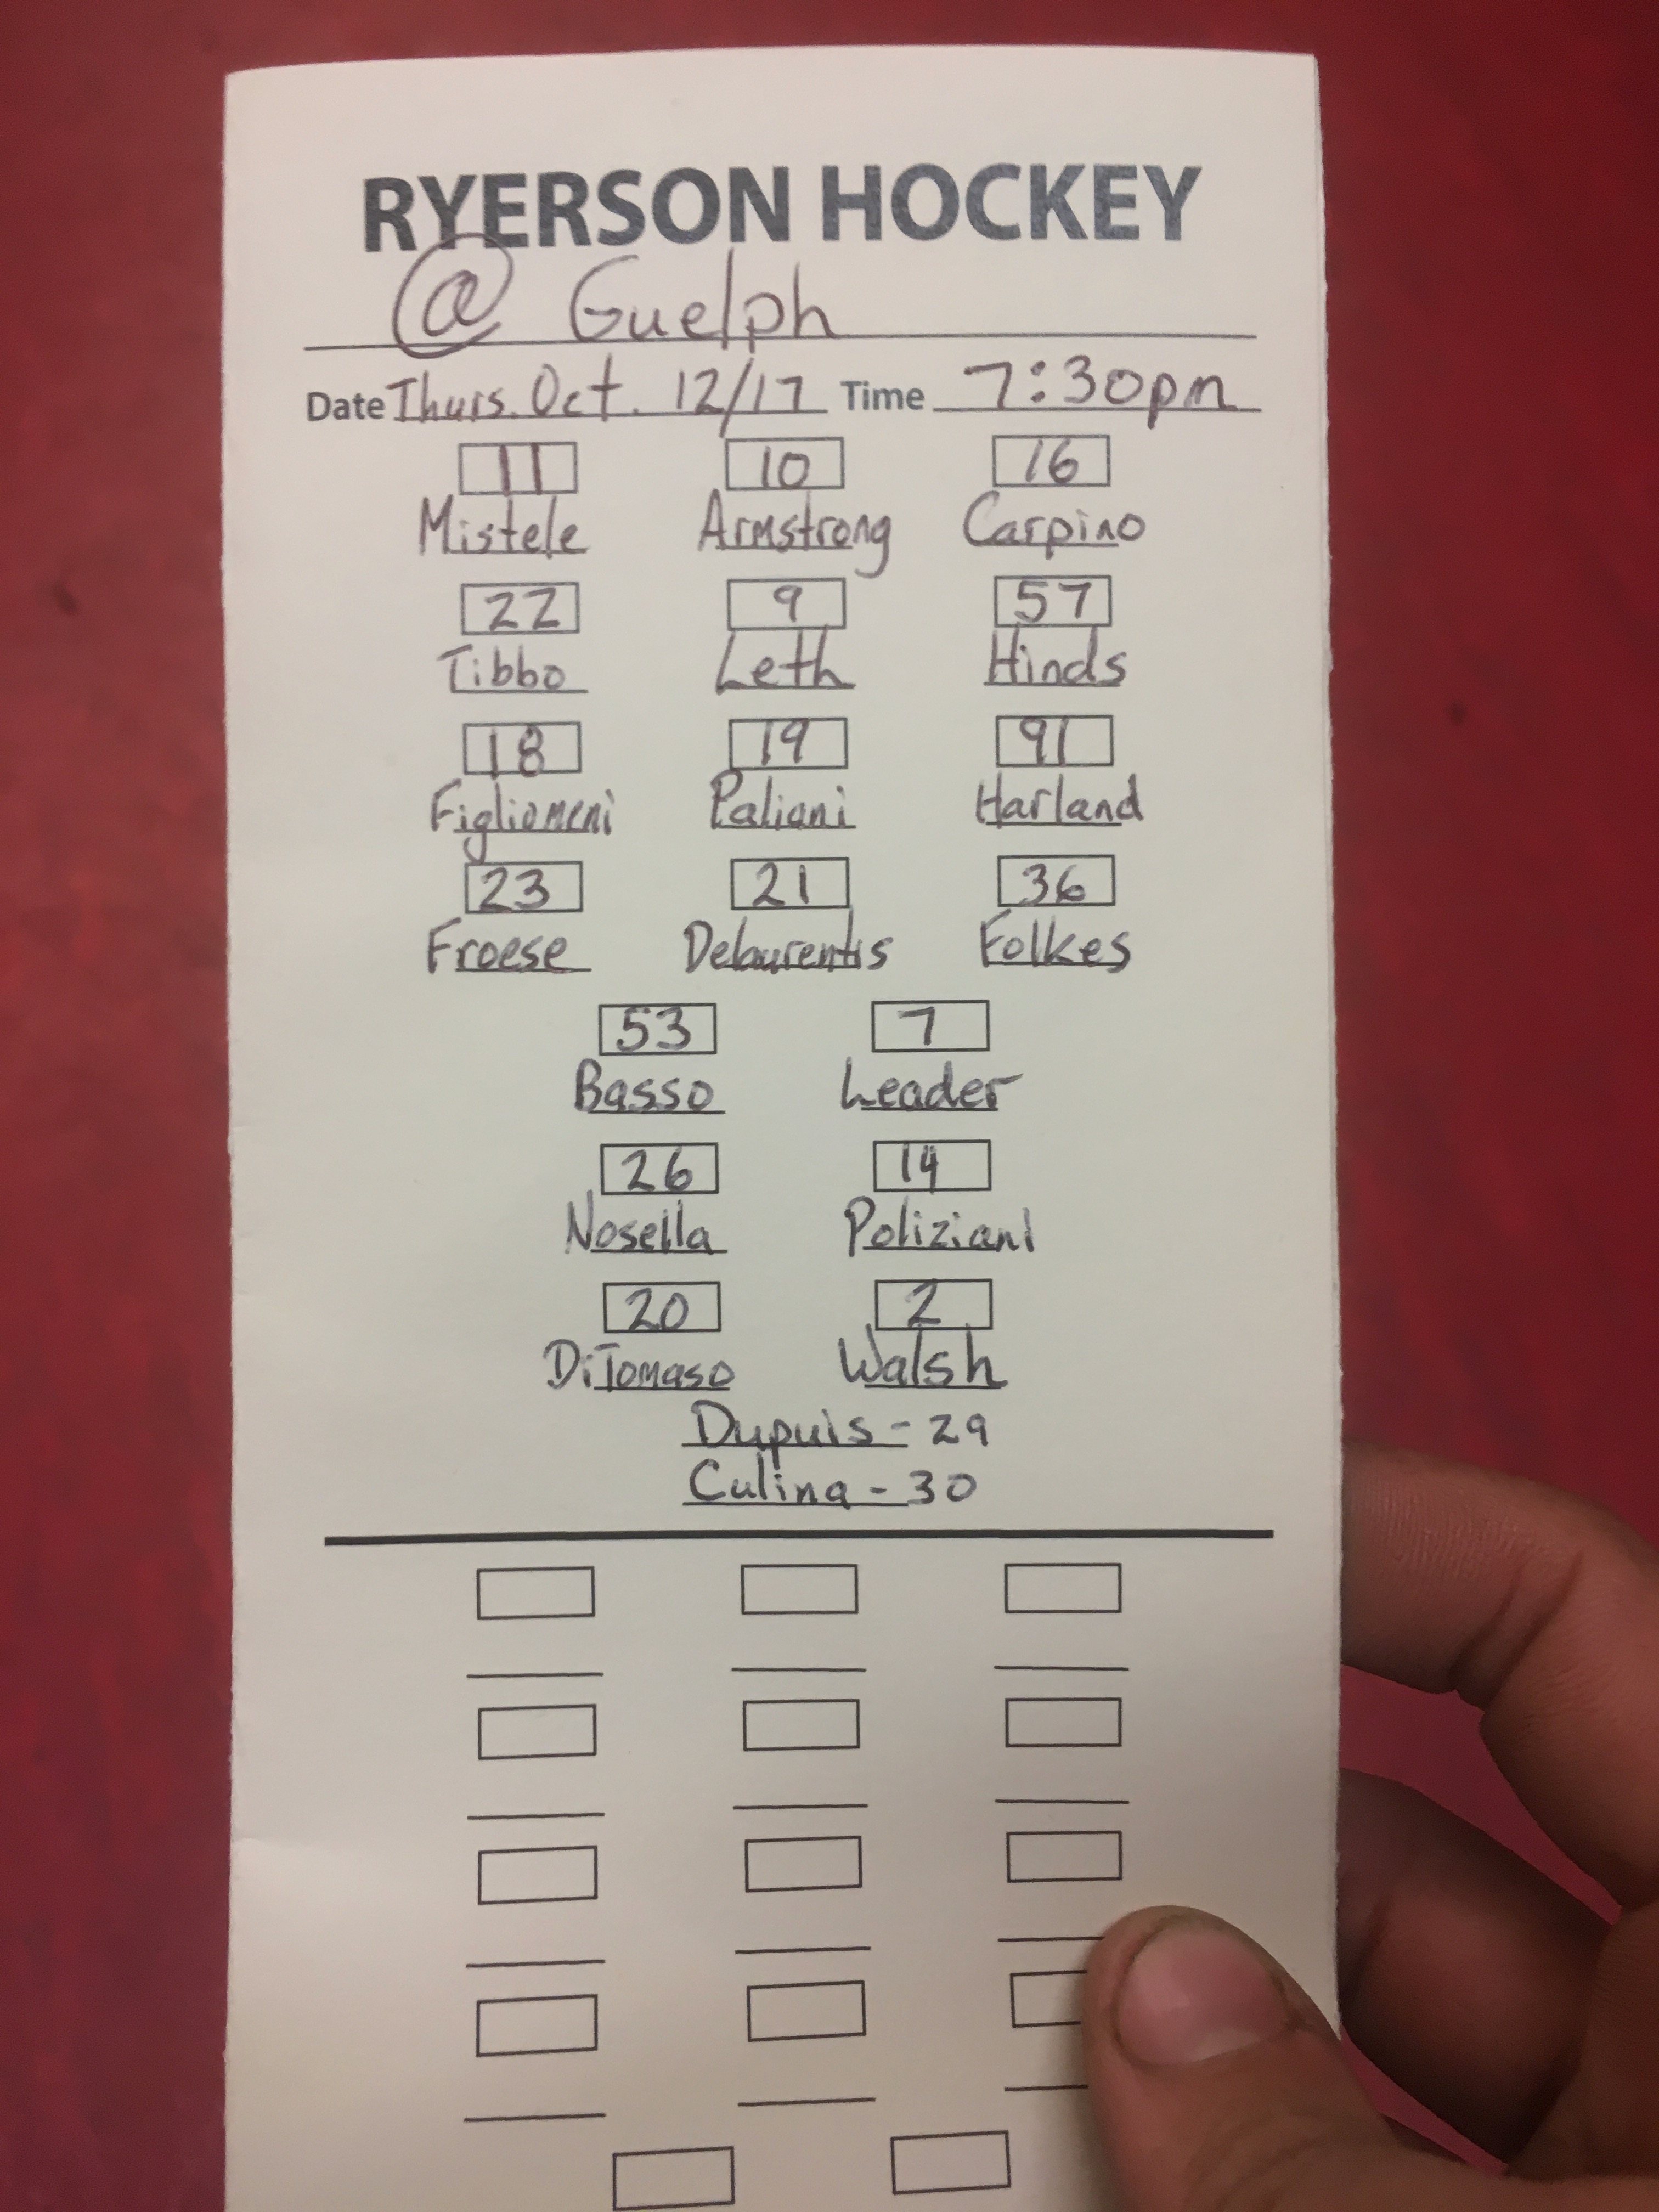 RYERSON HOCKEY
@ Guelph
Date Thurs. Oct. 12/17 Time 7:30pm
11 10 16
Mistele Armstrong Carpino
22 9 57
Tibbo Leth Hinds
18 19 91
Figliomeni Paliani Harland
23 21 36
Froese Delaurentis Folkes
53 7
Basso Leader
26 14
Nosella Poliziani
20 2
DiTomaso Walsh
Dupuis - 29
Culina - 30